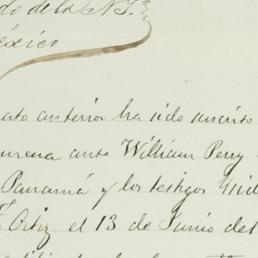 do de la N.
éxico
ato anterior ha sido inscrito
ante William Perry
Panamá y los testigos
F. Ortiz el 13 de Junio del